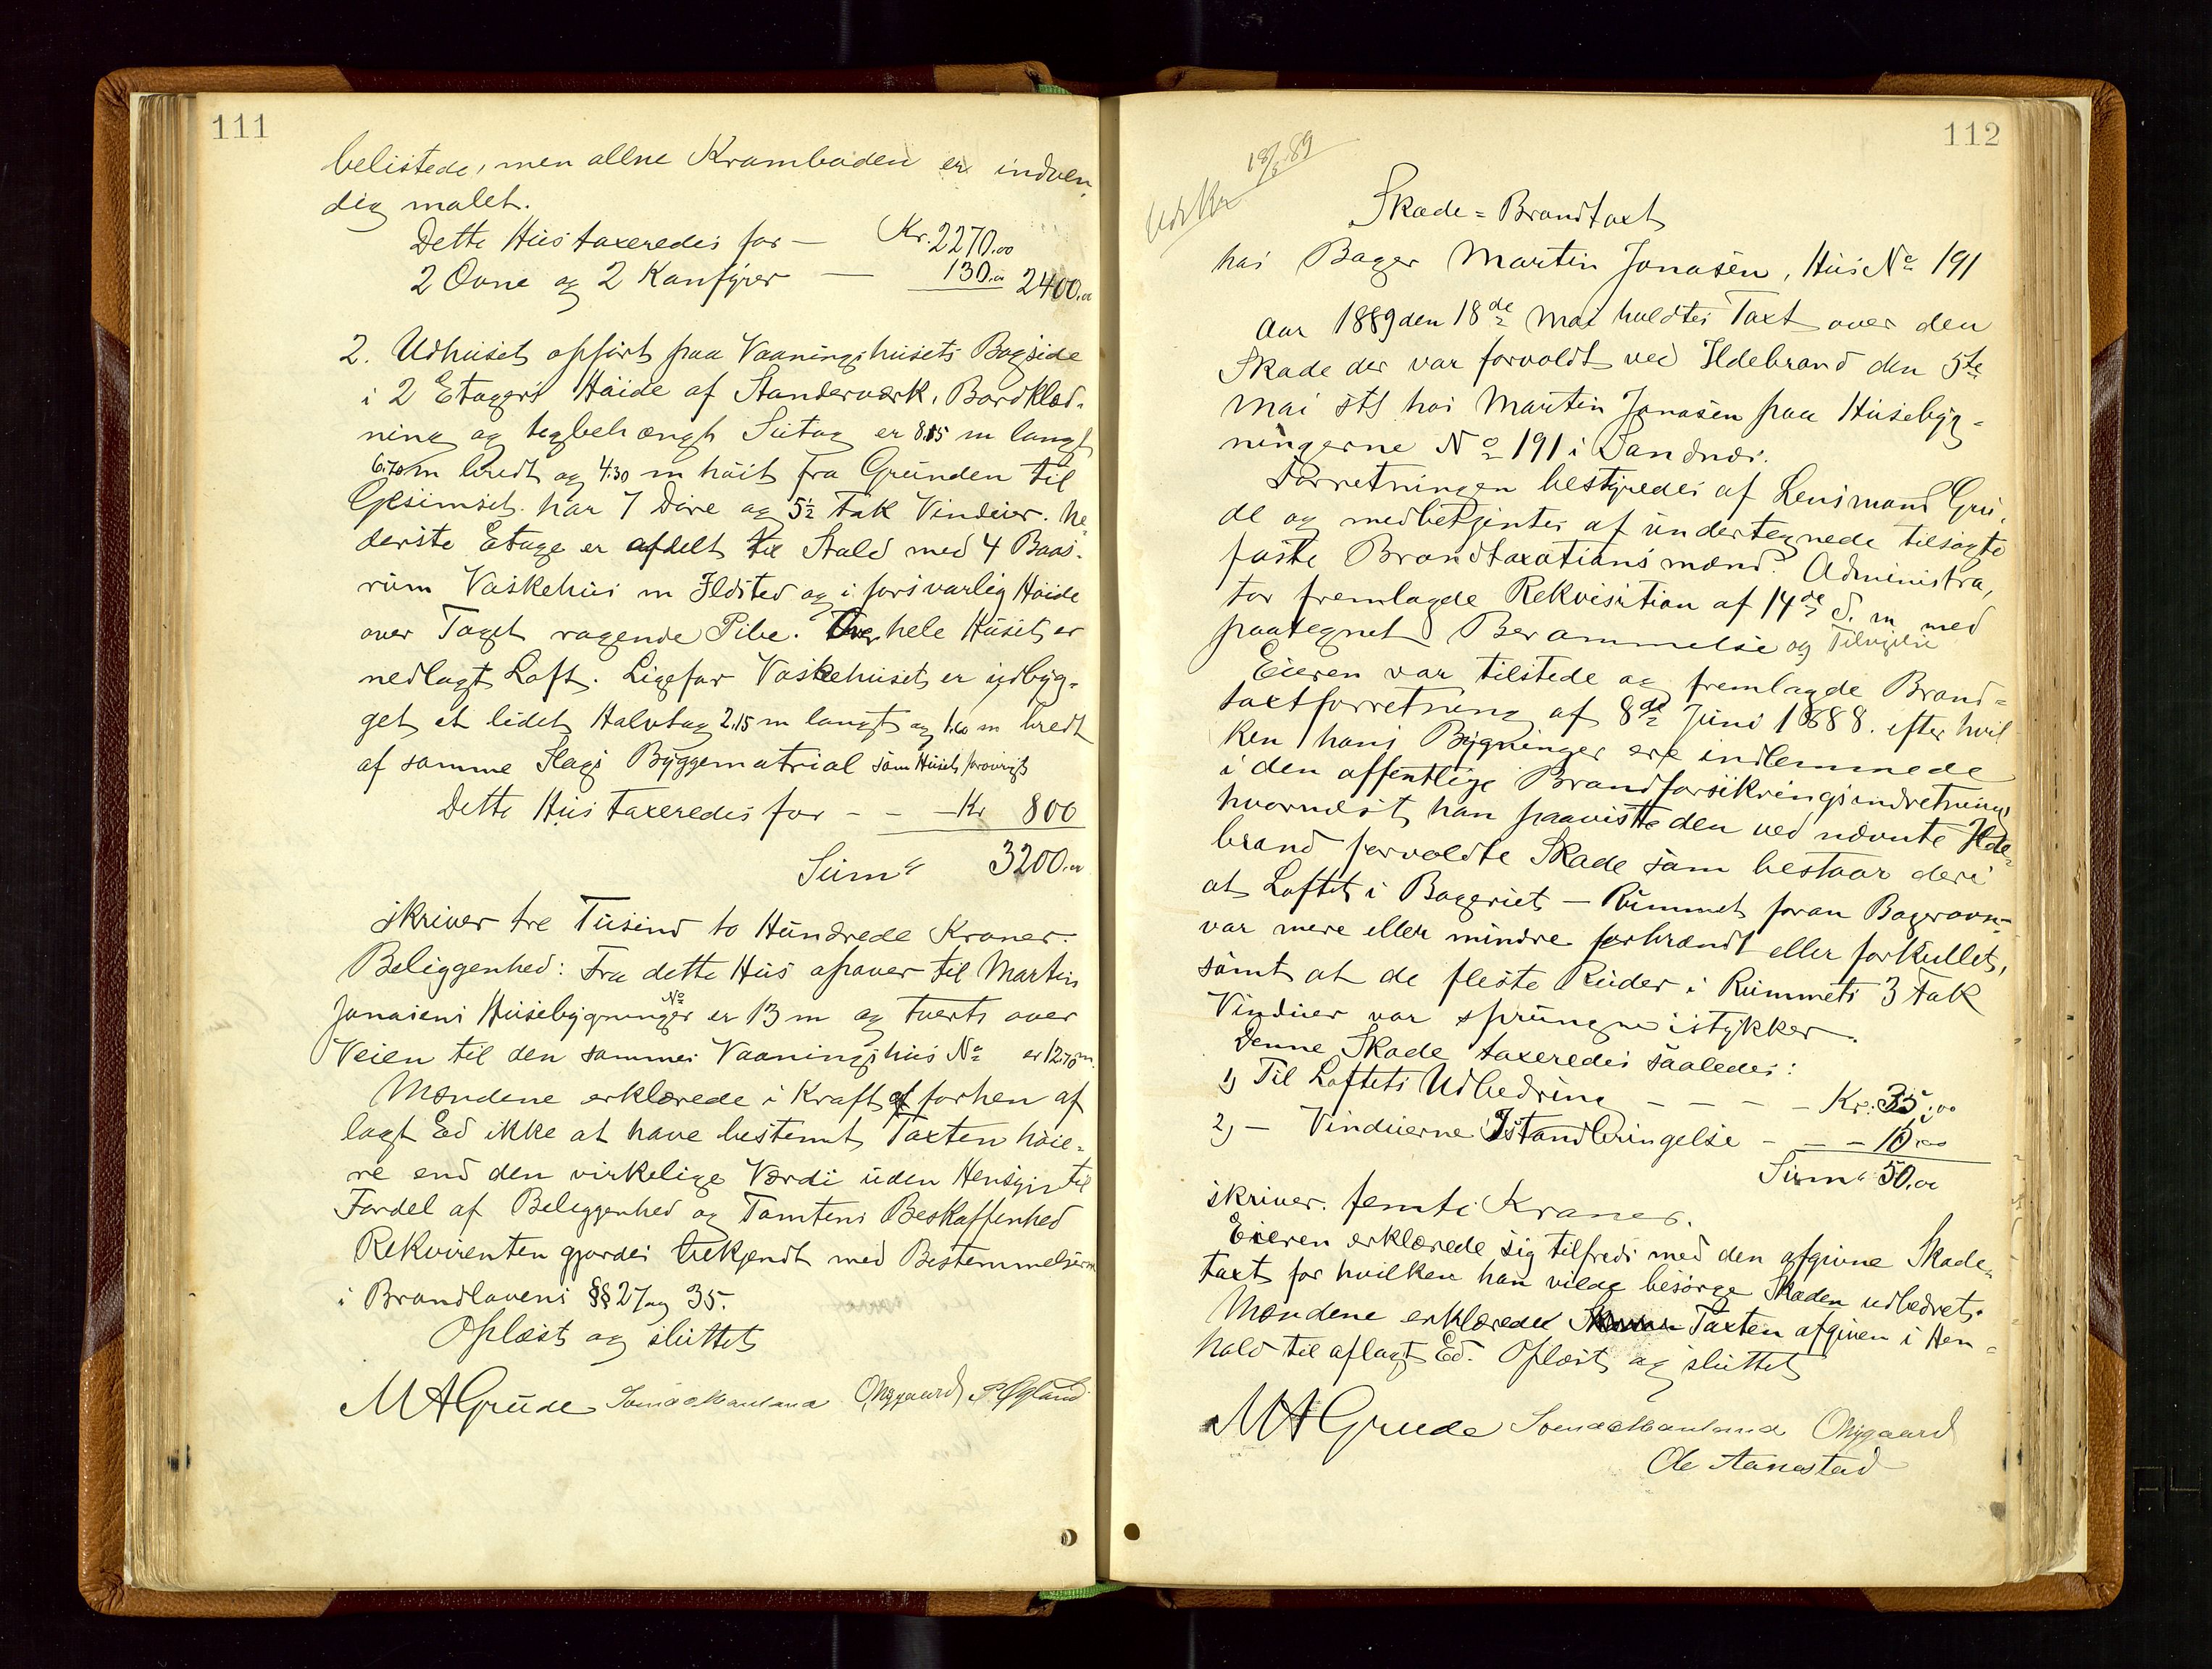 111
belistede, men allne Kramboden er indven-
dig malet.
Dette Hus taxeredes for — Kr. 2270.00
2 Ovne og 2 Kamfyrer — 130.00 2400.00
2. Udhuset opført paa Vaaningshusets Bagside
i 2 Etagers Høide af Standerværk, Bordklæd-
ning og teglbehængt Sutag er 8.15 m langt
6.70 m bredt og 4.30 m høit fra Grunden til
Gesimset. har 7 Døre og 5½ Fak Vinduer. Ne-
derste Etage er afdelt til Stald med 4 Baas-
rum Vaskehus m Ildsted og i forsvarlig Høide
over Taget ragende Pibe. Over hele Huset er
nedlagt Loft. Ligefor Vaskehuset er udbyg-
get et lidet Halvtag 2.15 m langt og 1.60 m bredt
af samme Slags Byggematrial som Huset forøvrigt
Dette Hus taxeredes for - - - Kr 800
Sum " 3200.00
skriver tre Tusind to Hundrede Kroner.
Beliggenhed: Fra dette Hus opover til Martin
Jonasens Husebygninger No er 13 m og tverts over
Veien til den sammes Vaaningshus No er 12.70 m.
Mændene erklærede i Kraft af forhen af
lagt Ed ikke at have bestemt Taxten høie-
re end den virkelige Værdi uden Hensyn til
Fordel af Beliggenhed og Tomtens Beskaffenhed
Rekvirenten gjordes bekjendt med Bestemmelserne
i Brandlovens §§ 27 og 35.
Oplæst og sluttet
MAGrude O. Nygaard P. Øgland
112
18/5 89
Skade=Brandtaxt
hos Bager Martin Jonasen, Hus No 191
Aar 1889 den 18de Mai holdtes Taxt over den
Skade der var forvoldt ved Ildebrand den 5te
Mai sts hos Martin Jonasen paa Husebyg-
ningerne No 191 i Sandnæs.
Forretningen bestyredes af Lensmand Gru-
de og medbetjentes af undertegnede tilsagte
faste Brandtaxationsmænd. Administra-
tor fremlagde Rekvisition af 14de d. m. med
paategnet Berammelse og Tilsigelse
Eieren var tilstede og fremlagde Brand-
taxtforretning af 8de Juni 1888. efter hvil
ken hans Bygninger ere indlemmede
i den offentlige Brandforsikringsindretning,
hvornæst han paaviste den ved nævnte Ilde-
brand forvoldte Skade som bestaar deri
at Loftet i Bageriet — Rummet foran Bagerovn-
var mere eller mindre forbrændt eller forkullet,
samt at de fleste Ruder i Rummets 3 Fak
Vinduer var sprungne istykker.
Denne Skade taxeredes saaledes:
1) Til Loftets Udbedring - - - - Kr: 35.00
2) — Vinduerne Istandbringelse - - - 15.00
Sum " 50.00
skriver. femti Kroner.
Eieren erklærede sig tilfreds med den afgivne Skade-
taxt for hvilken han vilde besørge Skaden udbedret.
Mændene erklærede Taxten afgiven i Hen-
hold til aflagt Ed. Oplæst og sluttet
MAGrude O. Nygaard
Ole Aanestad